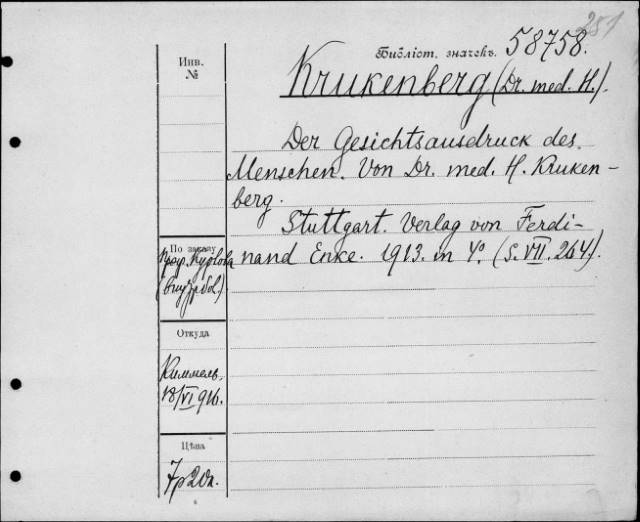 251
Библіот. значекъ. 58758.
Инв.
№
Krukenberg (Dr. med. H.).
Der Gesichtsausdruck des
Menschen. Von Dr. med. H. Kruken-
berg.
Stuttgart. Verlag von Ferdi-
nand Enke. 1913. in 4°. (S. VII. 264).
По заказу
проф. Курлова
Откуда
Киммель.
18/VI 916.
Цѣна
7р 20к.